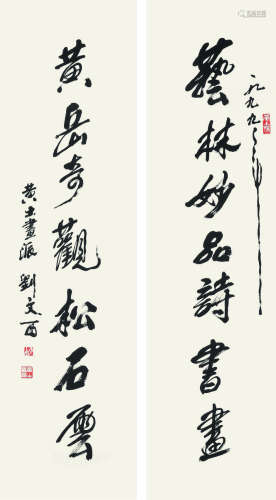 一九九九年
藝林妙品詩書畫
黃岳奇觀松石雲
黃土畫派 劉文西